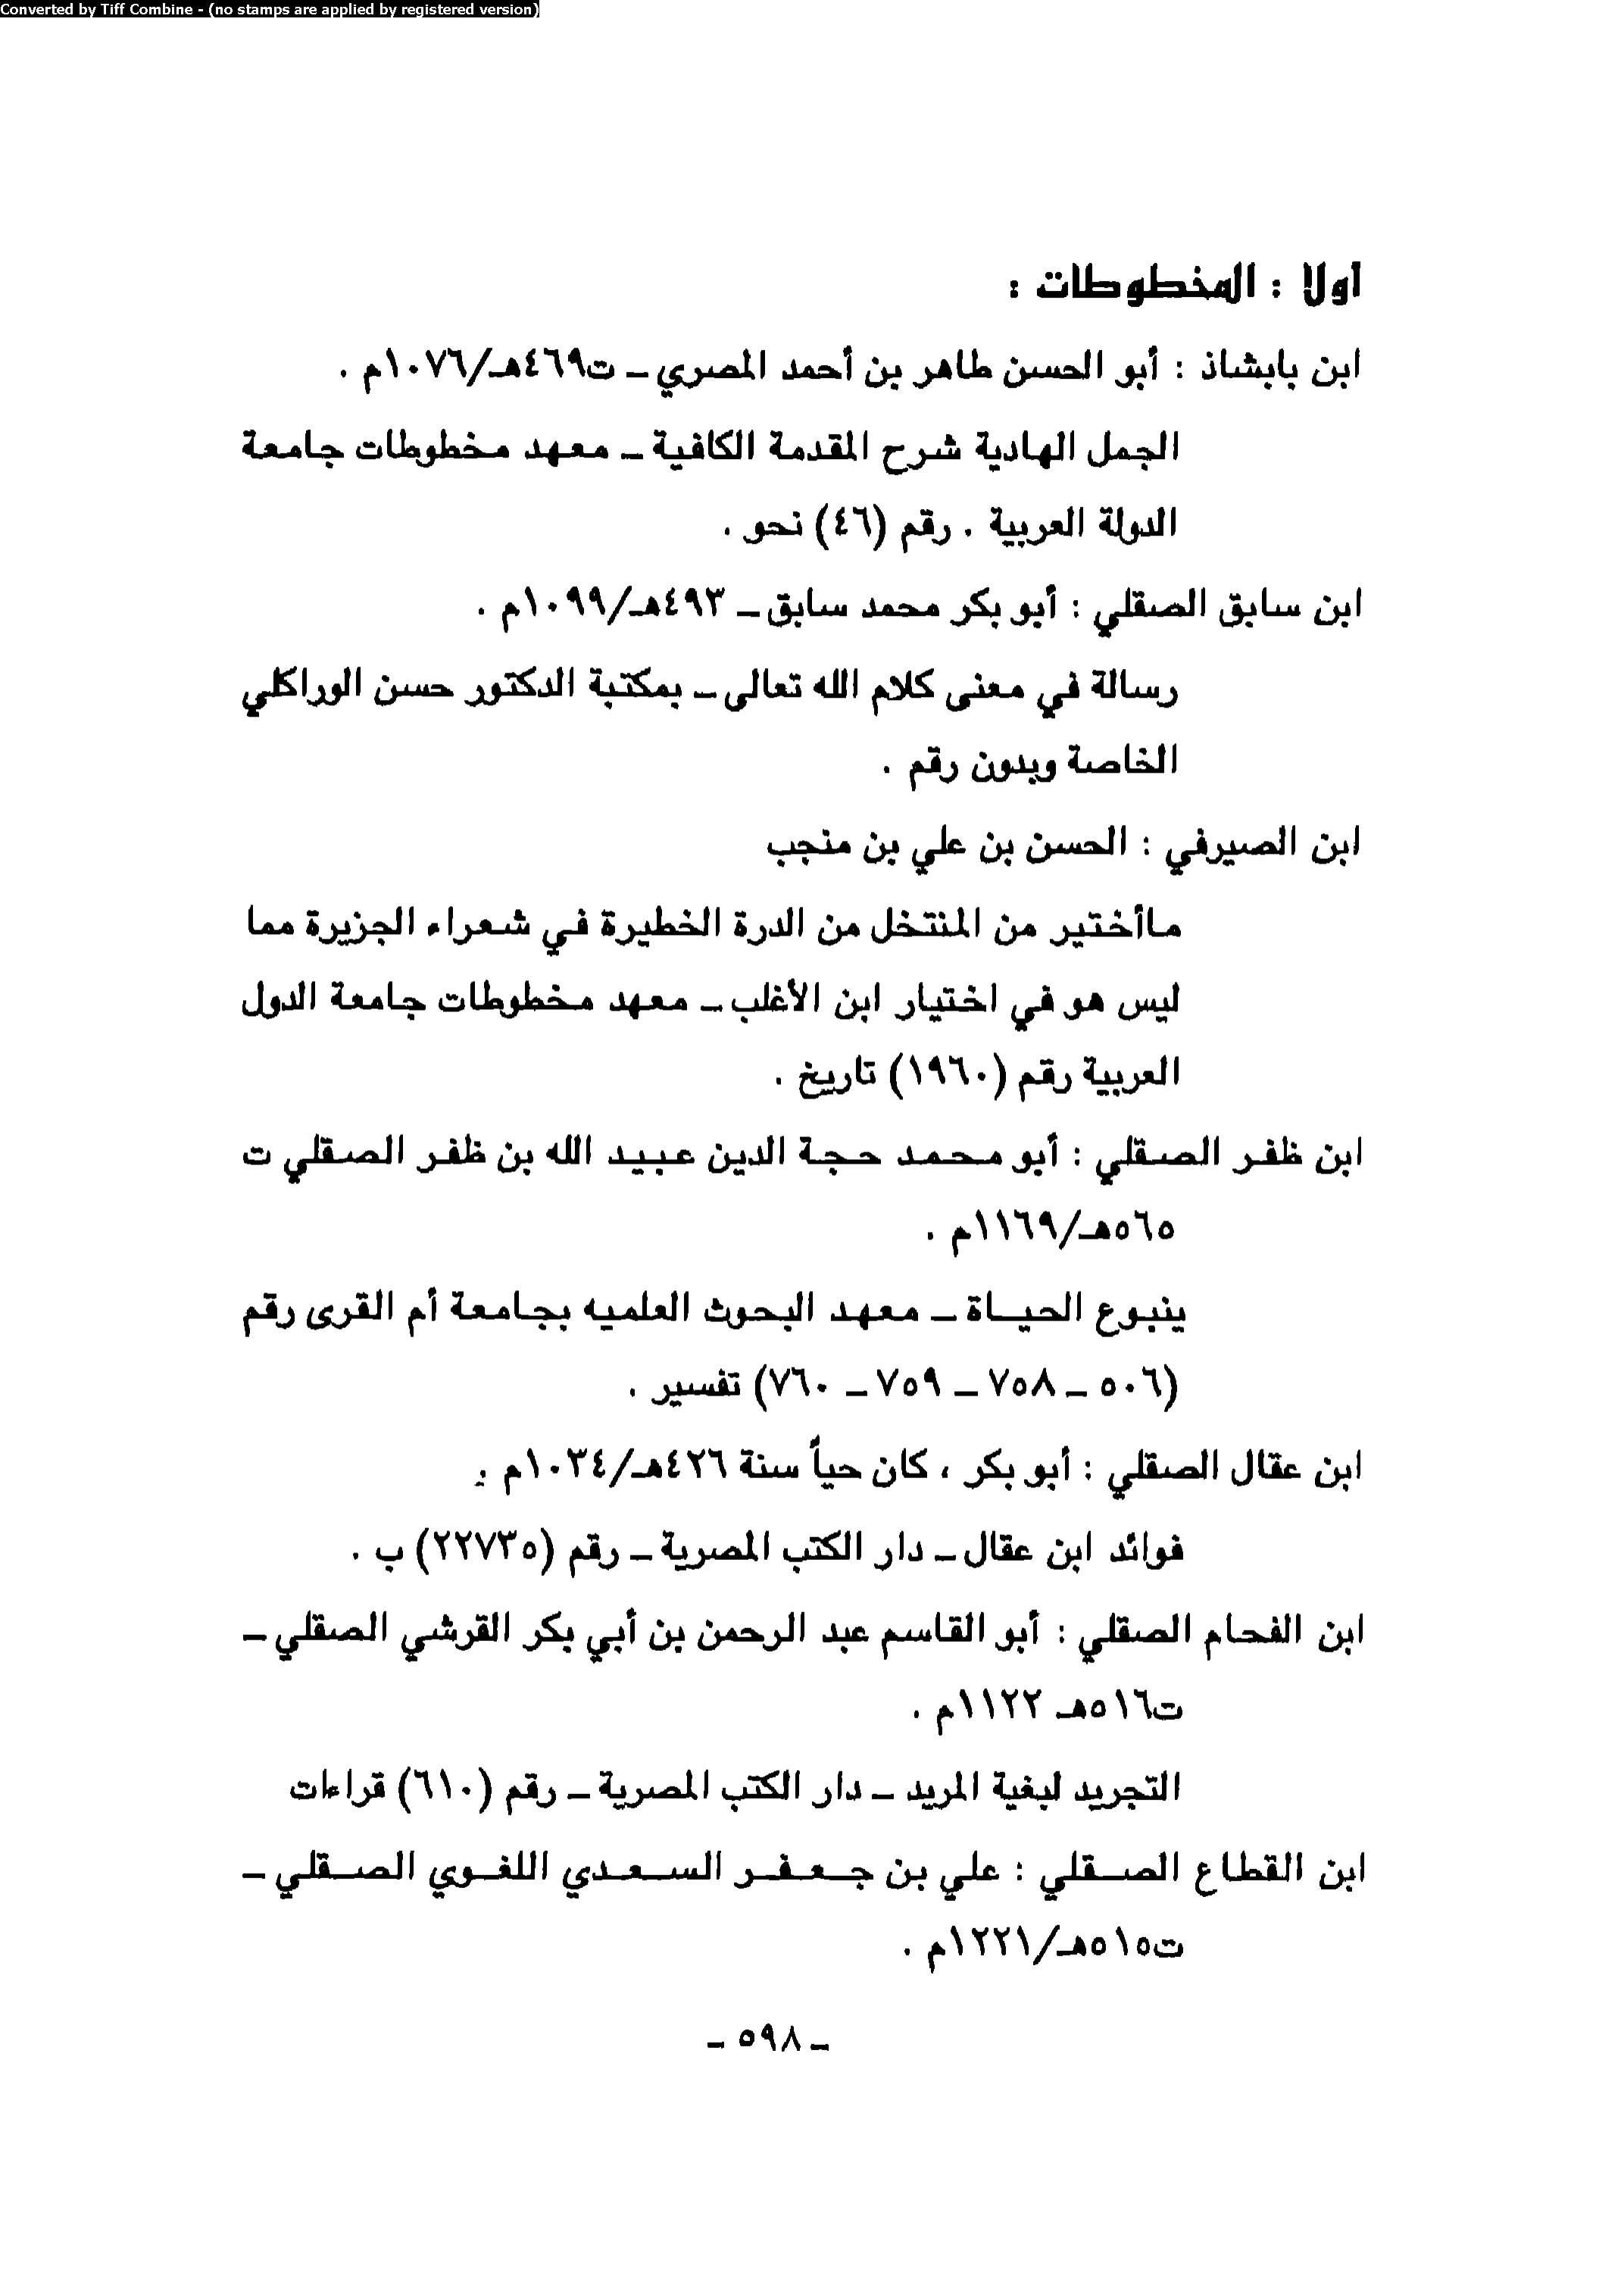 Converted by Tiff Combine - (no stamps are applied by registered version)
أولا : المخطوطات :
ابن بابشاذ : أبو الحسن طاهر بن أحمد المصري – ت٤٦٩هـ/١٠٧٦م .
الجمل الهادية شرح المقدمة الكافية – معهد مخطوطات جامعة
الدولة العربية . رقم (٤٦) نحو .
ابن سابق الصقلي : أبو بكر محمد سابق – ٤٩٣هـ/١٠٩٩م .
رسالة في معنى كلام الله تعالى – بمكتبة الدكتور حسن الوراكلي
الخاصة وبدون رقم .
ابن الصيرفي : الحسن بن علي بن منجب
ماأختير من المنتخل من الدرة الخطيرة في شعراء الجزيرة مما
ليس هو في اختيار ابن الأغلب – معهد مخطوطات جامعة الدول
العربية رقم (١٩٦٠) تاريخ .
ابن ظفر الصقلي : أبو محمد حجة الدين عبيد الله بن ظفر الصقلي ت
٥٦٥هـ/١١٦٩م .
ينبوع الحياة – معهد البحوث العلميه بجامعة أم القرى رقم
(٥٠٦ – ٧٥٨ – ٧٥٩ – ٧٦٠) تفسير .
ابن عقال الصقلي : أبو بكر ، كان حياً سنة ٤٢٦هـ/١٠٣٤م .
فوائد ابن عقال – دار الكتب المصرية – رقم (٢٢٧٣٥) ب .
ابن الفحام الصقلي : أبو القاسم عبد الرحمن بن أبي بكر القرشي الصقلي –
ت٥١٦هـ ١١٢٢م .
التجريد لبغية المريد – دار الكتب المصرية – رقم (٦١٠) قراءات
ابن القطاع الصقلي : علي بن جعفر السعدي اللغوي الصقلي –
ت٥١٥هـ/١٢٢١م .
– ٥٩٨ –